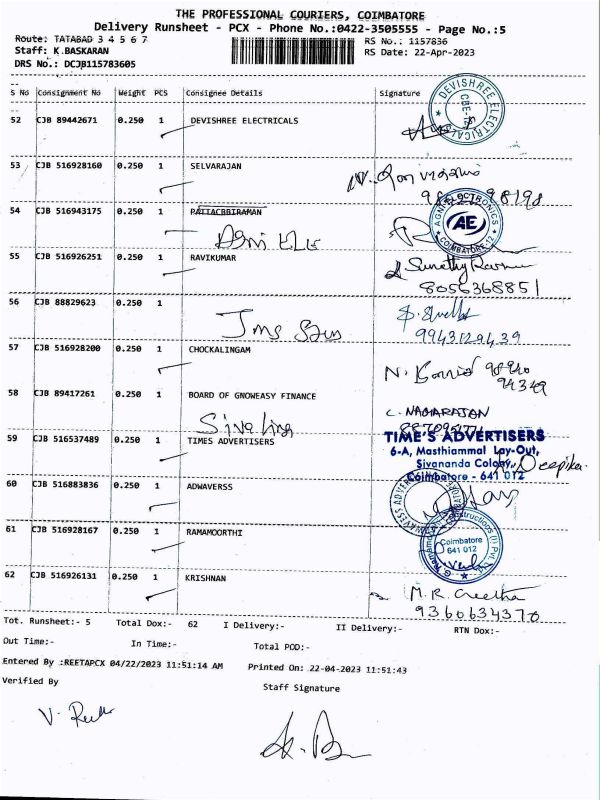 THE PROFESSIONAL COURIERS, COIMBATORE
Delivery Runsheet - PCX - Phone No.:0422-3505555 - Page No.:5
Route: TATABAD 3 4 5 6 7
RS No.: 1157836
Staff: K.BASKARAN
RS Date: 22-Apr-2023
DRS No.: DCJB115783605
S No Consignment No Weight PCS Consignee Details Signature
52 CJB 89442671 0.250 1 DEVISHREE ELECTRICALS
DEVISHREE ELECTRICALS
53 CJB 516928160 0.250 1 SELVARAJAN
54 CJB 516943175 0.250 1 PATTACBBIRAMAN
AGNI ELECTRONICS
AE
COIMBATORE-12
55 CJB 516926251 0.250 1 RAVIKUMAR
8055368851
56 CJB 88829623 0.250 1
57 CJB 516928200 0.250 1 CHOCKALINGAM
58 CJB 89417261 0.250 1 BOARD OF GNOWEASY FINANCE
C. NAGARAJAN
59 CJB 516537489 0.250 1 TIMES ADVERTISERS
TIME'S ADVERTISERS
6-A, Masthiammal Lay-Out,
Sivananda Colony,
Coimbatore - 641 012
Deepika
60 CJB 516883836 0.250 1 ADWAVERSS
61 CJB 516928167 0.250 1 RAMAMOORTHI
Coimbatore
641 012
62 CJB 516926131 0.250 1 KRISHNAN
M.R. Geetha
9360634370
Tot. Runsheet:- 5 Total Dox:- 62 I Delivery:- II Delivery:- RTN Dox:-
Out Time:- In Time:- Total POD:-
Entered By :REETAPCX 04/22/2023 11:51:14 AM Printed On: 22-04-2023 11:51:43
Verified By Staff Signature